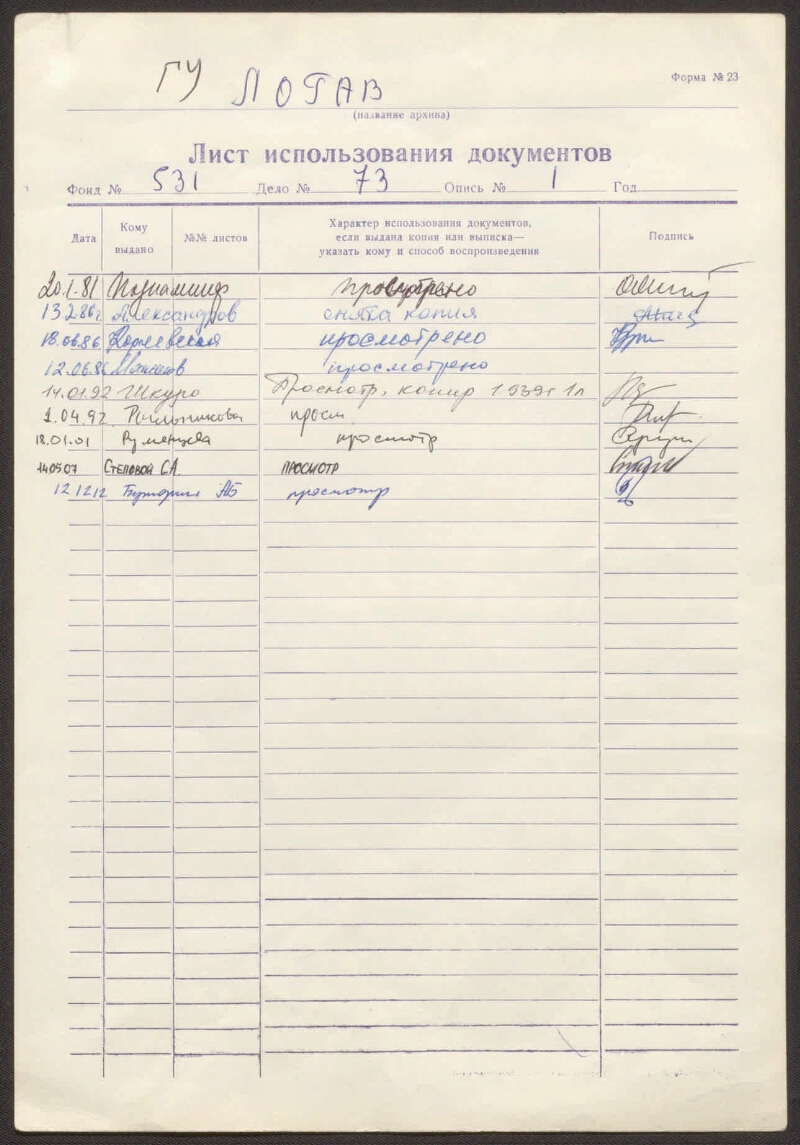 Форма № 23
ГУ ЛОГАВ
(название архива)
Лист использования документов
Фонд № 531 Дело № 73 Опись № 1 Год
Дата
Кому выдано
№№ листов
Характер использования документов,
если выдана копия или выписка—
указать кому и способ воспроизведения
Подпись
20.1.81 просмотрено
13.2.86г Александров снята копия
18.06.86 просмотрено
12.06.86 просмотрено
14.01.92 Шкуро Просмотр, копир 1939г 1л
1.04.92 просм.
18.01.01 Румянцева просмотр
140507 СТЕПОВОЙ С.А. ПРОСМОТР
121212 просмотр